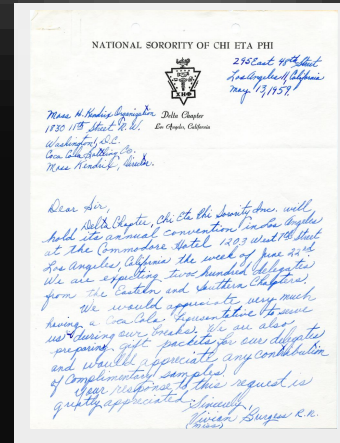 NATIONAL SORORITY OF CHI ETA PHI
245 East 48th Street
Los Angeles 11, California
May 13, 1959
ΧΗΦ
Delta Chapter
Los Angeles, California
Moss H. Kendrix Organization
1830 11th Street N.W.
Washington, D.C.
Coca Cola Bottling Co.
Moss Kendrix, Director.
Dear Sir,
Delta Chapter, Chi Eta Phi Sorority Inc. will
hold its annual convention in Los Angeles
at the Commodore Hotel 1203 West 7th Street
Los Angeles, California the week of June 22nd.
We are expecting two hundred delegates
from the Eastern and Southern Chapters.
We would appreciate very much
having a Coca Cola representative to serve
us during our breaks. We are also
preparing gift packets for our delegates
and would appreciate any contribution
of complimentary samples.
Your response to this request is
greatly appreciated.
Sincerely,
Vivian Burgess R.N.
(Miss)